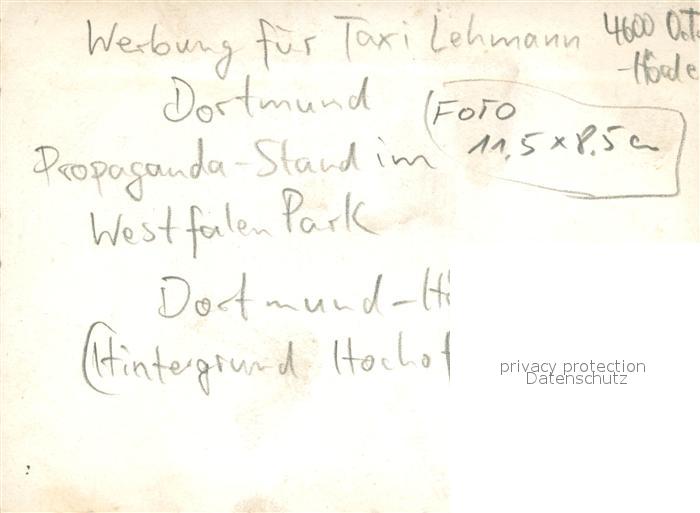 Werbung für Taxi Lehmann
4600
Dortmund
(FOTO
11,5 x 8,5 cm
Propaganda-Stand im
Westfalen Park
Dortmund-Hö
(Hintergrund Hochof
privacy protection
Datenschutz